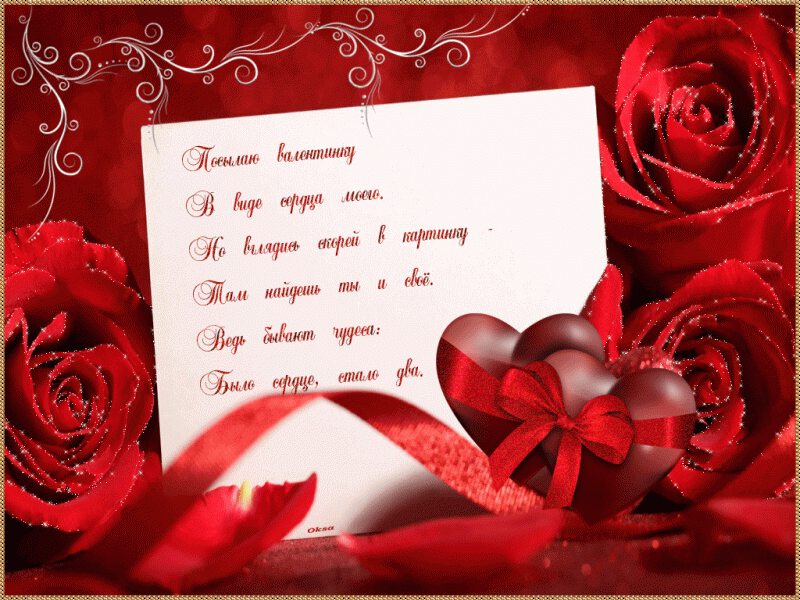 Посылаю валентинку
В виде сердца моего.
Но вглядись скорей в картинку -
Там найдешь ты и своё.
Ведь бывают чудеса:
Было сердце, стало два.
Oksa